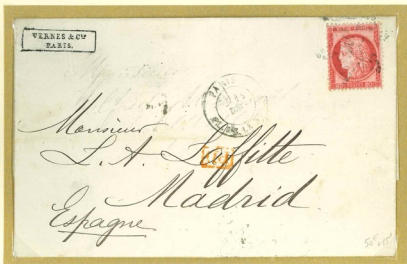 VERNES & Cie
PARIS.
PARIS
Monsieur
L. A. Loffitte
P.D.
Madrid
Espagne